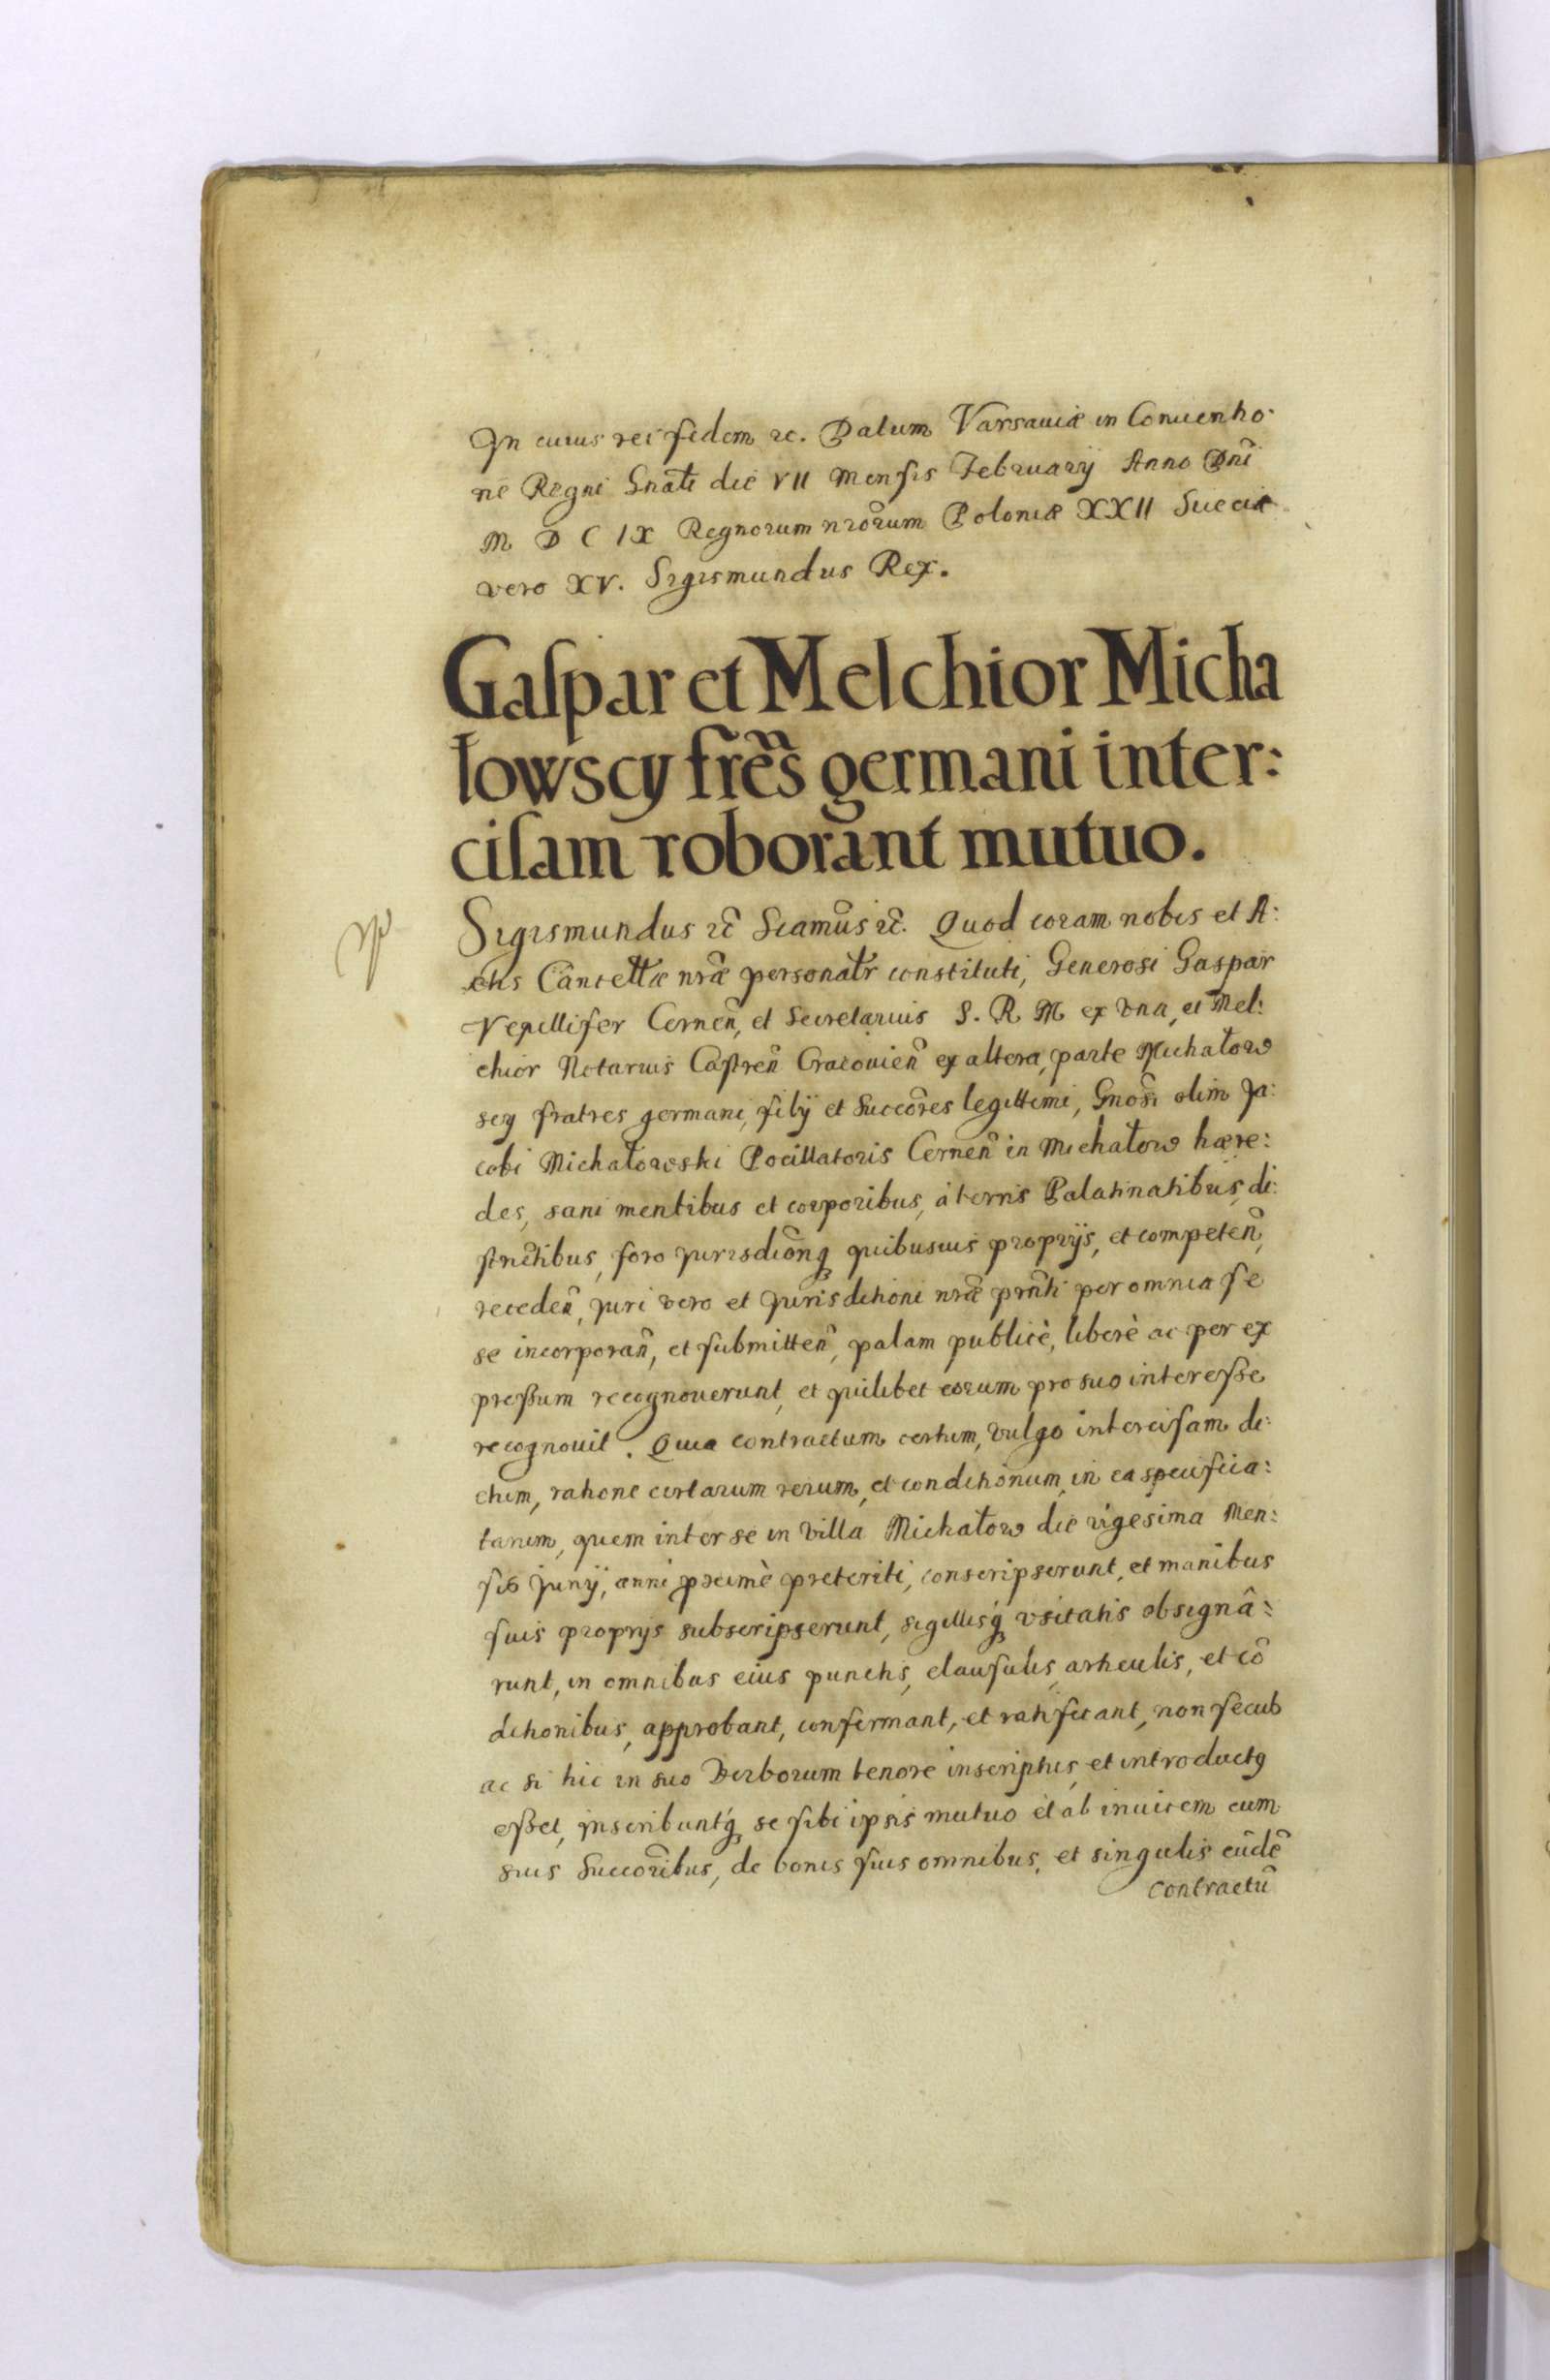 In cuius rei fidem ec. Datum Varsaviæ in Conventio:
ne Regni Gnãli die VII mensis February Anno Dñi
M D C IX Regnorum nrõrum Poloniæ XXII Sueciæ
vero XV. Sigismundus Rex.
Gaſpar et Melchior Micha
łowscy frẽs germani inter:
ciſam roborãnt mutuo.
Sigismundus ec̃ Scamũs ec̃. Quod coram nobis et A:
ctis Cancellæ nræ̃ personalr constituti, Generosi Gaspar
Vexillifer Cernen̄, et Secretarius S. R. M. ex vna, et Mel:
chior Notarius Caſtren̄ Cracouien̄ ex altera, parte Michałow
scy fratres germani, filij et Succõres legittimi, Gnõsi olim Ja:
cobi Michałowski Pocillatoris Cernen̄ in Michałow hære:
des, sani mentibus et corporibus, à terris Palatinatibus, di:
ſtrictibus, foro Jurisdiõnq́ꝫ quibusuis proprijs, et competen̄,
receden̄, Juri vero et Jurisdictioni nræ̃ prñti per omnia ſe
se incorporan̄, et ſubmitten̄, palam publicè, liberè ac per ex
preſsum recognouerunt, et quilibet eorum pro suo intereſse
recognouit. Quia contractum certum, vulgo interciſam di:
ctum, ratione certarum rerum, et conditionum, in ea specificia:
tarum, quem inter se in villa Michałow die vigesima Men:
ſis Junij, anni proximè preteriti, conscripserunt, et manibus
ſuis proprijs subscripserunt, sigillisq́ꝫ vsitatis obsignâ:
runt, in omnibus eius punctis, clauſulis, articulis, et cõ
ditionibus, approbant, confirmant, et ratificant, non ſecus
ac si hic in suo Verborum tenore inscriptus, et introductꝫ
eſset, Inscribuntq́ꝫ se ſibi ipsis mutuo et ab inuicem cum
suis Succõribus, de bonis ſuis omnibus, et singulis eũdẽ
contractũ